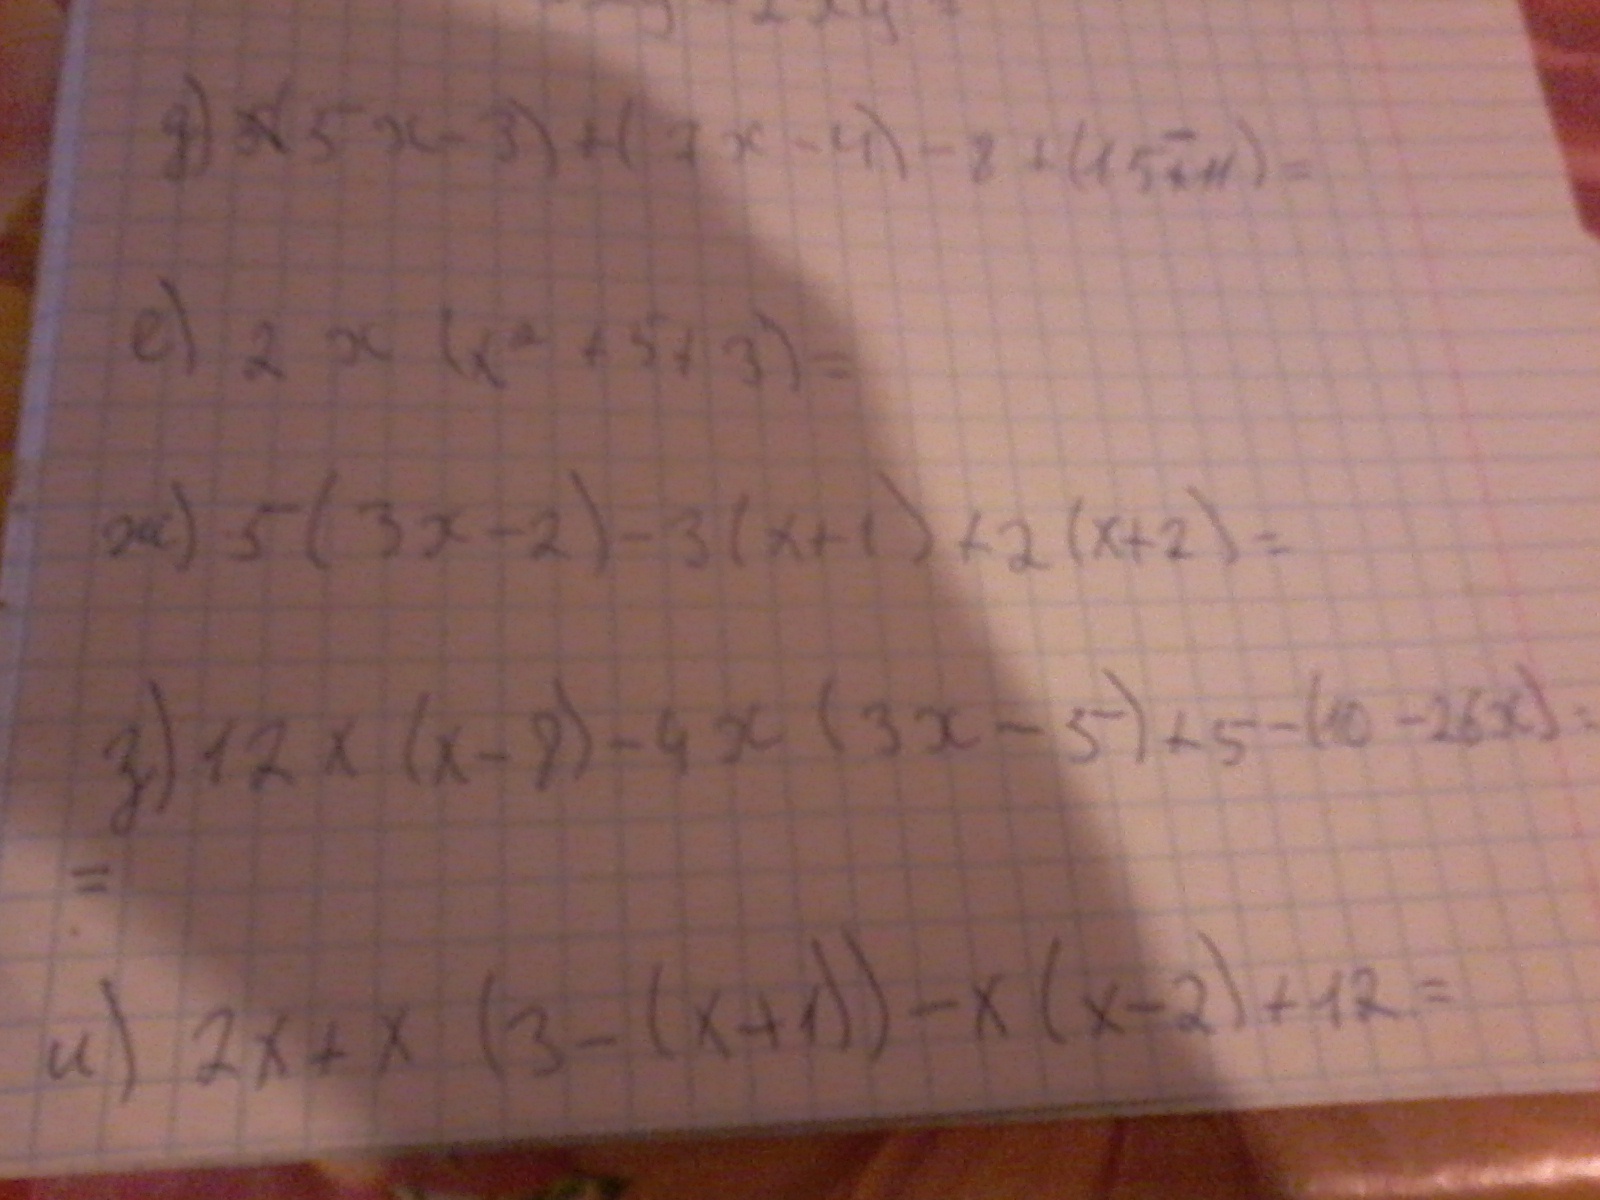 2xy =
д) (5x-3)+(7x-4)-8+(15-11)=
е) 2x (x² +5+3)=
ж) 5(3x-2)-3(x+1)+2(x+2)=
з) 12x (x-8)-4x (3x-5)+5-(10-26x)=
=
и) 2x+x (3-(x+1))-x(x-2)+12=